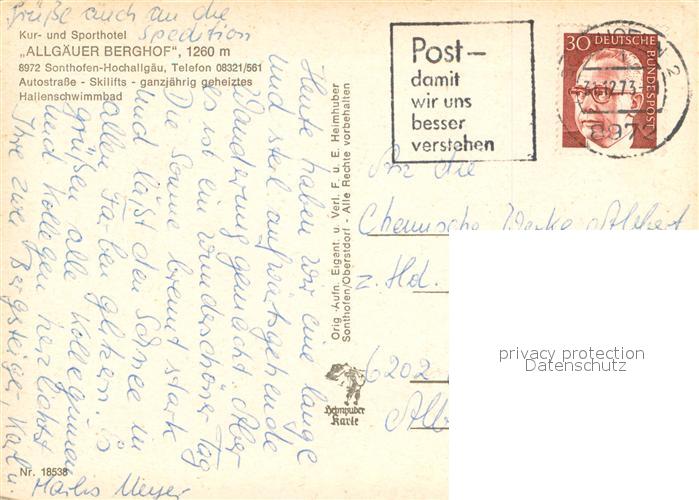 Grüße auch an die
Spedition
Kur- und Sporthotel
„ALLGÄUER BERGHOF", 1260 m
8972 Sonthofen-Hochallgäu, Telefon 08321/561
Autostraße - Skilifts - ganzjährig geheiztes
Hallenschwimmbad
Heute haben wir eine lange
und steil aufwärtsgehende
Wanderung gemacht. Aber
es ist ein wunderschöner Tag
Die Sonne brennt stark
und läßt den Schnee in
allen Farben glitzern. Es
grüßen alle Kolleginnen
und Kollegen herzlichst
Ihre zwei Bergsteiger, Karl u
Marlis Meyer
Nr. 18538
Orig.-Aufn. Eigent. u. Verl. F. u. E. Heimhuber
Sonthofen/Oberstdorf - Alle Rechte vorbehalten
Heimhuber
Karte
Post–
damit
wir uns
besser
verstehen
30 DEUTSCHE
BUNDESPOST
2
31.12.73
8972
An die
Chemische Werke Albert
z. Hd.
6202
Alb
privacy protection
Datenschutz